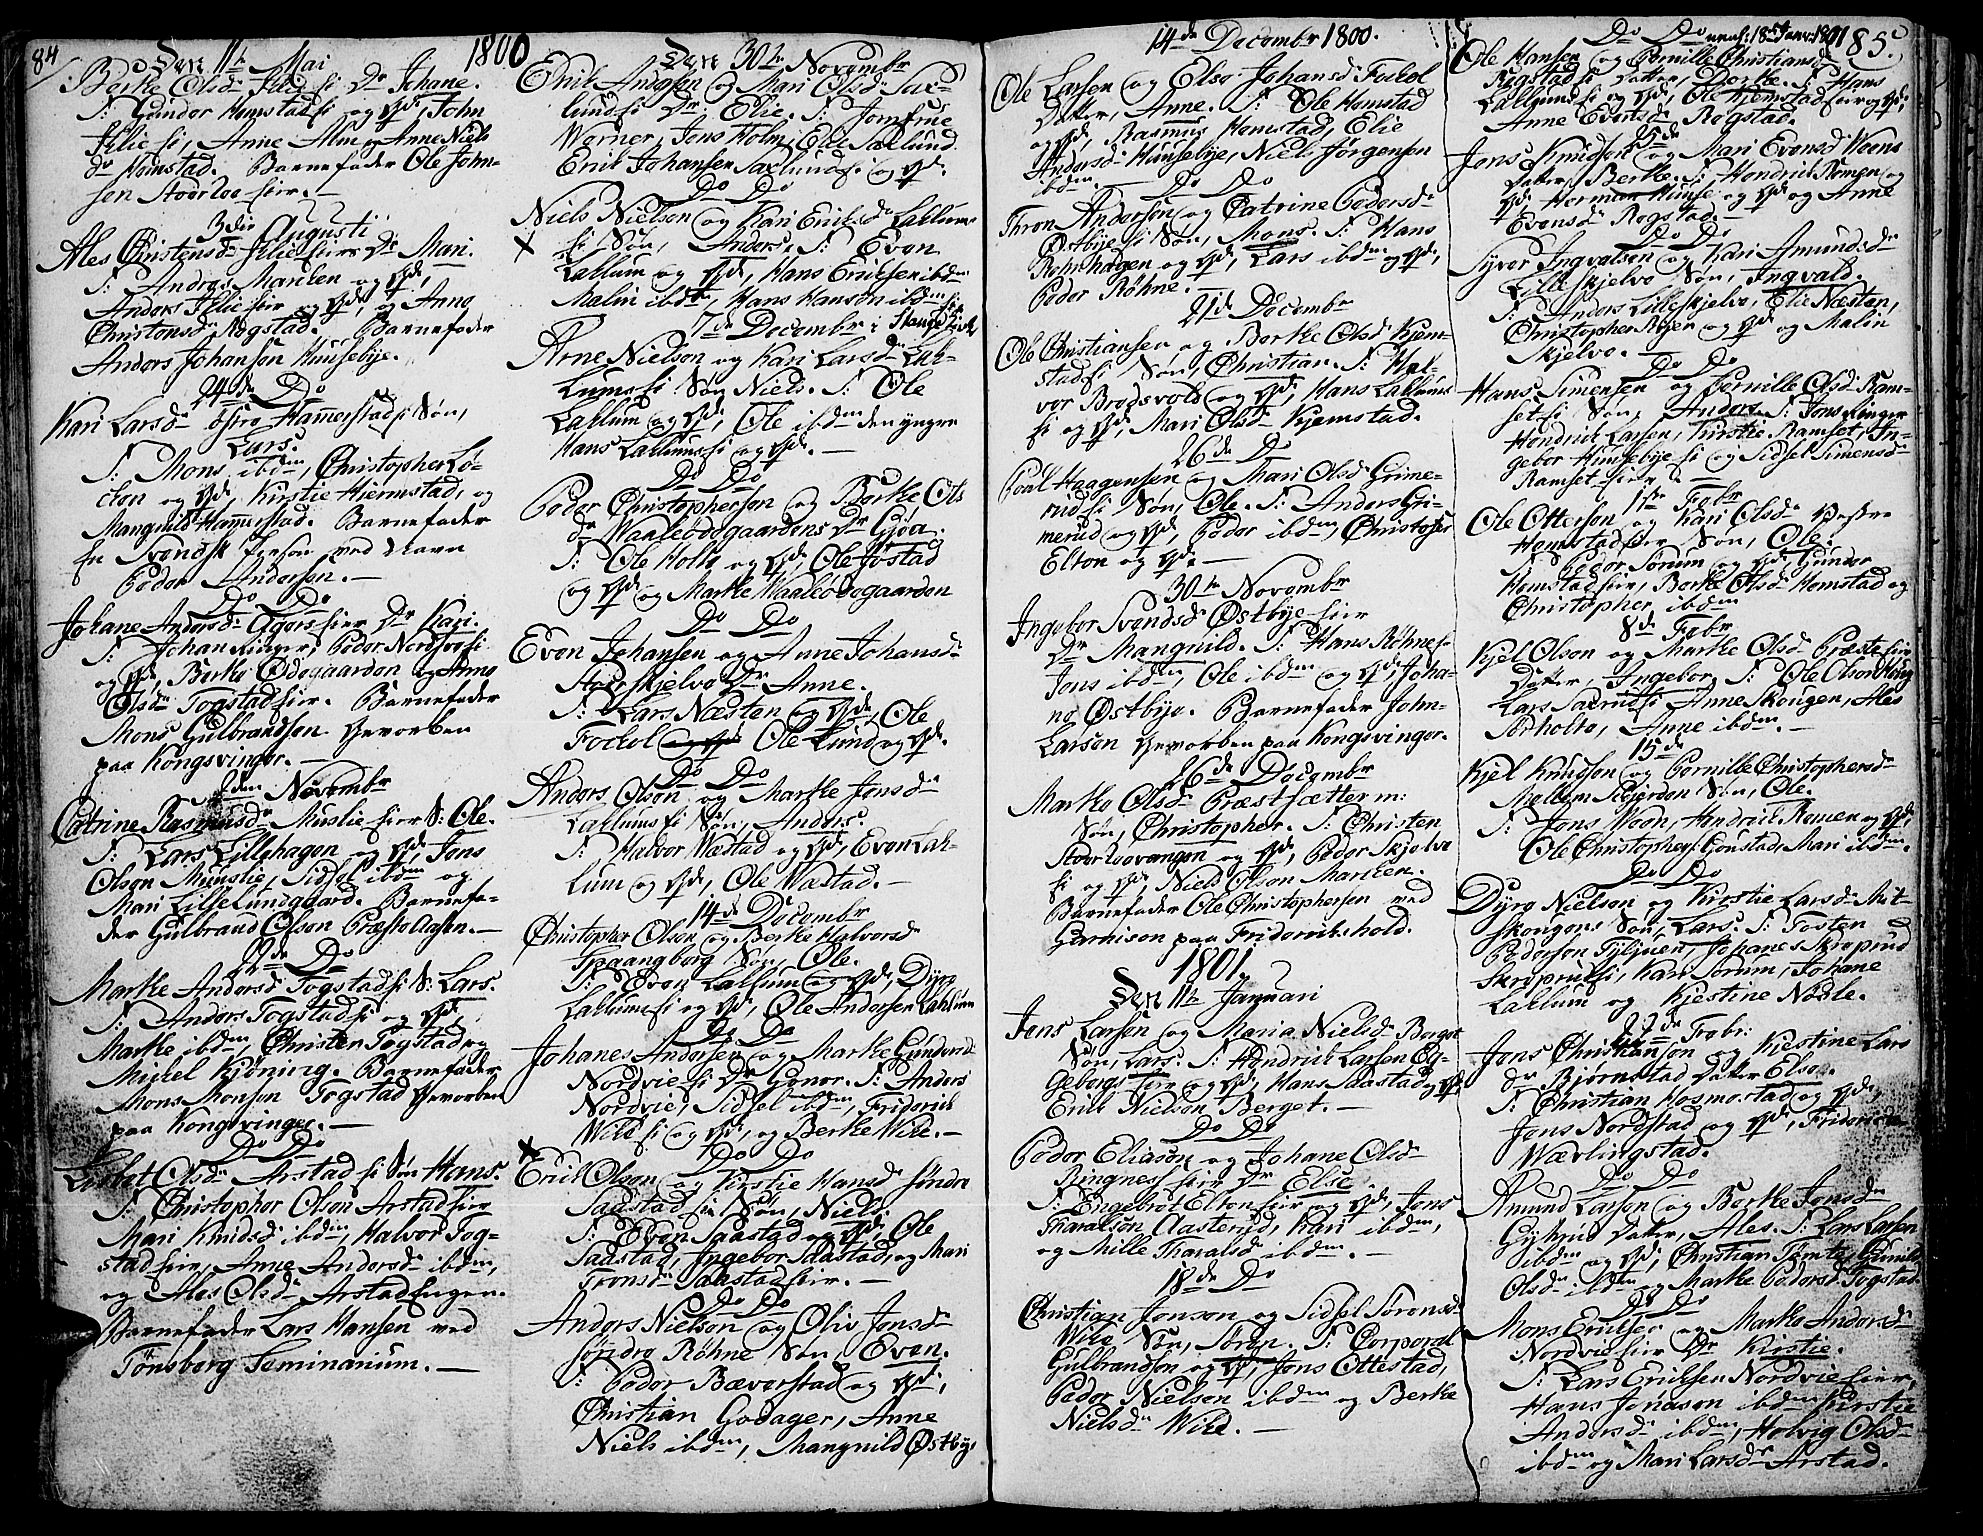 84
1800
Den 11te Mai
Berte Olsdr Ilie si Dr Johane.
S: Gundor Homstad si og qde, John
Ilie si, Anne Alm og Anne Niels
dr Homstad. Barnefader Ole John-
sen Stoorloe
3die Augusti
Ales Christensdr Ilie Dr Mari.
S: Andreas
Anders Ilie og qde, og Anne
Christensdr Rogstad. Barnefader
Anders Johansen Huusebye.
24de Do
Kari Larsdr Hammerstad si Søn,
Lars.
S: Mons ibdm, Christopher Lø-
chen og qde, Kirstie Hiermstad, og
Mangnild Hammerstad. Barnefader
En Svendsk Person ved Navn
Peder Andersen.
Do Do
Johane Andersdr Dr Kari.
S: Johan Ringer, Peder
og qde, Berte Ødegaarden og Anne
Olsdr Togstad. Barnefader
Mons Gulbrandsen Gevorben
paa Kongsvinger.
Novembr
Catrine Rasmusdr Muslie S: Ole.
S: Lars Lillehagen og qde, Jens
Olsen Munslie, Sidsel ibdm og
Mari Lille Lundgaard. Barnefa-
der Gulbrand Olsen Præste Aasen.
Do
Marte Andersdr Togstad si S: Lars.
S: Anders Togstad si og qde,
Marte ibdm, Christen Togstad, og
Michel Barnefader
Mons Monsen Togstad Gevorben
paa Kongsvinger.
Do Do
Lisbet Olsdr Arstad si Søn Hans.
S: Christopher Olsen Arstad
Mari Knudsdr ibdm, Halvor Tog-
stad, Anne Andersdr ibdm,
og Ales Olsdr Arstad
Barnefader Lars Hansen ved
Tønsberg Seminarium.
Den 30te Novembr
Erik og Mari Olsdr Sax-
lund si Dr Elie. S: Jomfrue
Werner, Jens Holm, Elie Saxlund
Erik Johansen Saxlund si og qde.
Do Do
Niels Nielsen og Kari Eriksdr Lallum
si Søn, Anders. S: Even
Lallum og qde, Hans Eriksen ibdm
Malin ibdm, Hans Hansen ibdm
7de Decembr i Stange
Arne Nielsen og Kari Larsdr Lal-
lum si Søn Niels. S: Ole
Lallum og qde, Ole ibdm den yngre
Hans Lallum si og qde.
Do Do
Peder Christophersen og Berte Ols
dr Waaleødegaardens Dr Gjøa.
S: Ole Holte og qde, Ole Jøstad
og qde og Marte Waaleødegaarden
Do Do
Even Johansen og Anne Johansdr
Stoer Skjelve Dr Anne.
S: Lars Næsten og qde, Ole
Fockel Ole Lund og qde.
Do Do
Anders Olsen og Marthe Jensdr
Lallum si Søn, Anders.
S: Halvor Wæstad og qde, Even Lal-
lum og qde, Ole Wæstad.
14de Decembr
Christopher Olsen og Berte Halvorsdr
Spaangberg Søn, Ole.
S: Even Lallum og qde, Dyre
Lallum si og qde, Ole Andersen Lallum
Do Do
Johanes Andersen og Marte Gundersdr
Nordvie si Dr Gunor. S: Anders
Nordvie, Sidsel ibdm, Friderich
Wild si og qde, og Berte Wile.
Do Do
Erich Olsen og Kirstie Hansdr søndre
Saastad si Søn, Niels.
S: Even Saastad og qde, Ole
Saastad, Ingebor Saastad, og Mari
Tronsdr Saastad.
Do Do
Anders Nielsen og Oliv Jensdr
søndre Røhne Søn, Even.
S: Peder Bæverstad og qde,
Christian Godager, Anne
Niels ibdm, Mangnild Østbye.
14de Decembr 1800.
Ole Larsen og Else Johansdr Fockel
Datter, Anne. S: Ole Homstad
og qde, Rasmus Homstad, Elie
Andersdr Huusebye, Niels Jørgensen
ibdm.
Do Do
Thron Andersen og Catrine Pedersdr
Østbye si Søn, Mons. S: Hans
Rohnhagen og qde, Lars ibdm og qde,
Peder Røhne.
21de Decembr
Ole Christiansen og Berte Olsdr Kjem-
stad si Søn, Christian. S: Hal-
vor Brodsvold og qde, Hans Lallum
si og qde, Mari Olsdr Kjemstad.
26de Do
Poul Haagensen og Mari Olsdr Grime-
rud si Søn, Ole. S: Anders Gri-
merud og qde, Peder ibdm, Christopher
Elton og qde.
30te Novembr
Ingebor Svendsdr Østbye
Dr Mangnild. S: Hans Røhne
Jens ibdm, Ole ibdm og qde, Joha-
ne Østbye. Barnefader John-
Larsen Gevorben paa Kongsvinger.
26de Decembr
Marte Olsdr Præstsætter
Søn, Christopher. S: Christen
Stoer Loevangen og qde, Peder Skjelve
si og qde, Niels Olsen
Barnefader Ole Christophersen ved
Garnison paa Friderichshold.
1801
Den 11te Januari
Jens Larsen og Maria Nielsdr Berget
Søn, Lars. S: Hendrich Larsen Eg-
geberg og qde, Hans Saastad og qde,
Erik Nielsen Berget.
Do Do
Peder Eliasen og Johane Olsdr
Ringnes Dr Else.
S: Engebret Elton og qde, Jens
Tharalsen Aasterud, Kari ibdm,
og Mille Tharalsdr ibdm.
18de Do
Christian Jensen og Sidsel Sørensdr
Wile Søn, Søren. S: Corporal
Gulbrandsen og qde, Jens Ottestad,
Peder Nielsen ibdm og Berte
Nielsdr Wile.
Do Do 18de Januar 1801
85.
Ole Hansen og Pernille Christiansdr
Rogstad si Datter, Dorte. S: Hans
Lallum si og qde, Ole Kjemstad og qde,
Anne Evensdr Rogstad.
25de
Jens Knudsen og Mari Evensdr Woens
Datter, Berte. S: Hendrich Remen og
qde, Herman Huuse og qde og Anne
Evensdr Rogstad.
Do Do
Syver Ingvalsen og Kari Amundsdr
Lilleskjelve Søn, Ingvald.
S: Anders Lilleskjelve, Elie Næsten,
Christopher og qde og Malin
Skjelve.
Do Do
Hans Simensen og Pernille Olsdr Ram-
set si Søn, Anders. S: Jens Ringer
Hendrik Larsen, Kirstie Ramset, In-
gebor Huusebye si og Sidsel Simensdr
Ramset
1ste Febr
Ole Ottersen og Kari Olsdr Vestre
Homstad Søn, Ole.
S: Peder Sørum og qde, Gunder
Homstad, Berte Olsdr Homstad og
Christopher ibdm
8de Febr
Kjel Olsen og Marte Olsdr Præste
Datter, Ingebor. S: Ole Olsen
Lars Anne Skougen, Ales
Porholte, Anne ibdm.
15de
Kjel Knudsen og Pernille Christophersdr
Søn, Ole.
S: Jens Woen, Hendrich Remen og qde,
Ole Christophers Gonstad, Mari ibdm.
Do Do
Dyre Nielsen og Kirstie Larsdr Mit-
skougens Søn, Lars. S: Tosten
Pedersen Johanes Skreprud
Skreprud si, Kari Sørum, Johane
Lallum og Kjestine Noole.
22de Febr:
Jens Christiansen og Kjestine Lars
dr Bjørnstad Datter Else.
S: Christian Hosmestad og qde,
Jens Nordstad og qde, Friderich
Wærlingstad.
Do Do
Amund Larsen og Berte Jensdr
Datter, Ales. S: Lars Larsen
ibdm og qde, Christian Tomte, Gunild
Olsdr ibdm og Marte Pedersdr Togstad.
Do Do
Mons Eriksen og Marte Andersdr
Nordvie Dr Kirstie.
S: Lars Ericksen Nordvie,
Hans Jonasen ibdm Kirstie
Andersdr ibdm, Helvig Olsdr
ibdm og Mari Larsdr Arstad.